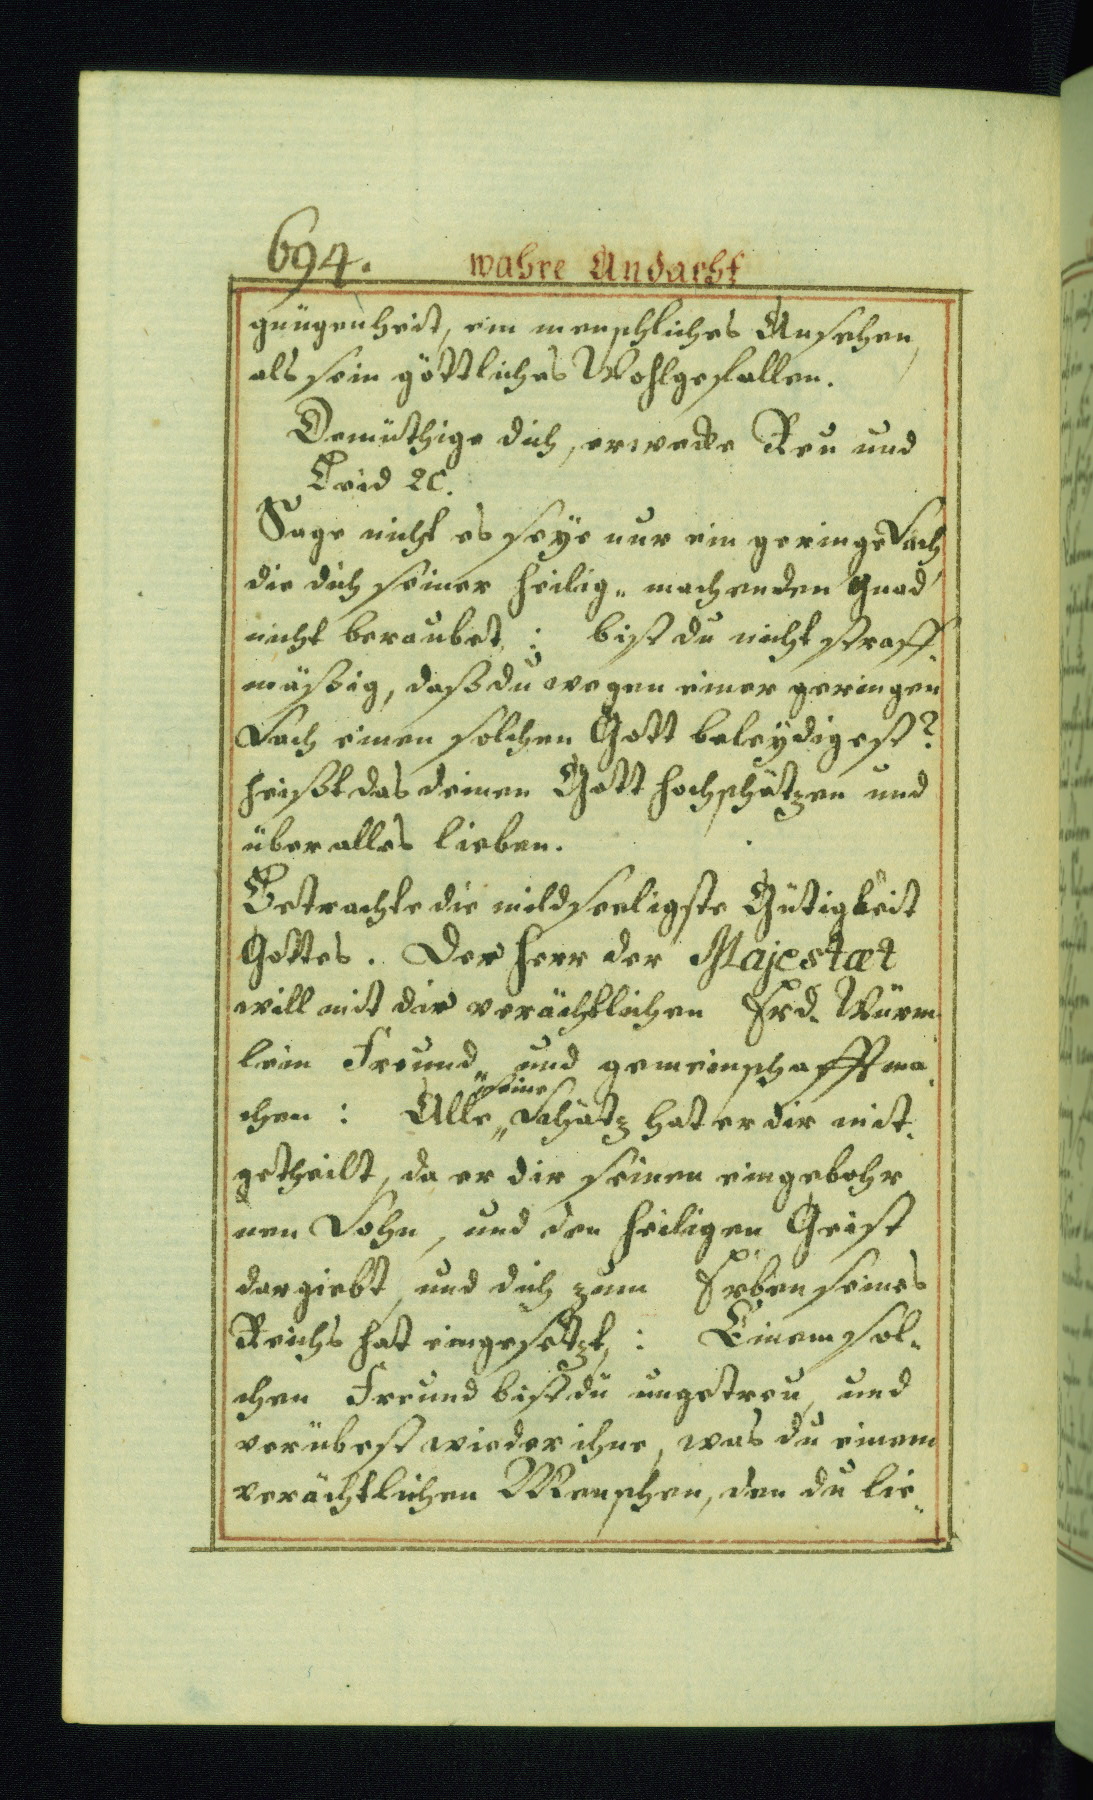 694. wahre Andacht
gnügenheit, ein menschliches Ansehen,
als sein göttliches Wohlgefallen.
Demüthige dich, erwecke Reu und
Leid ꝛc.
Sage nicht es seÿe nur ein geringe Sach
die dich seiner heilig„ machenden Gnad
nicht beraubet,: bist du nicht straff„
mäßig, daß du wegen einer geringen
Sach einen solchen Gott beleÿdigest?
heißt das deinen Gott hochschätzen und
über alles lieben.
Betrachte die mildseeligste Gütigkeit
Gottes. Der Herr der Majestæt
will mit dir verächtlichen Erd„ Würm„
lein Freund„ und gemeinschafft ma„
seine
chen: Alle„ Schätz hat er dir mit„
getheilt, da er dir seinen eingebohr
nen Sohn, und den heiligen Geist
dargiebt, und dich zum Erben seines
Reichs hat eingesetzt,: Einem sol„
chen Freund bist du ungetreu, und
verübest wieder ihne, was du einem
verächtlichen Menschen, den du lie„